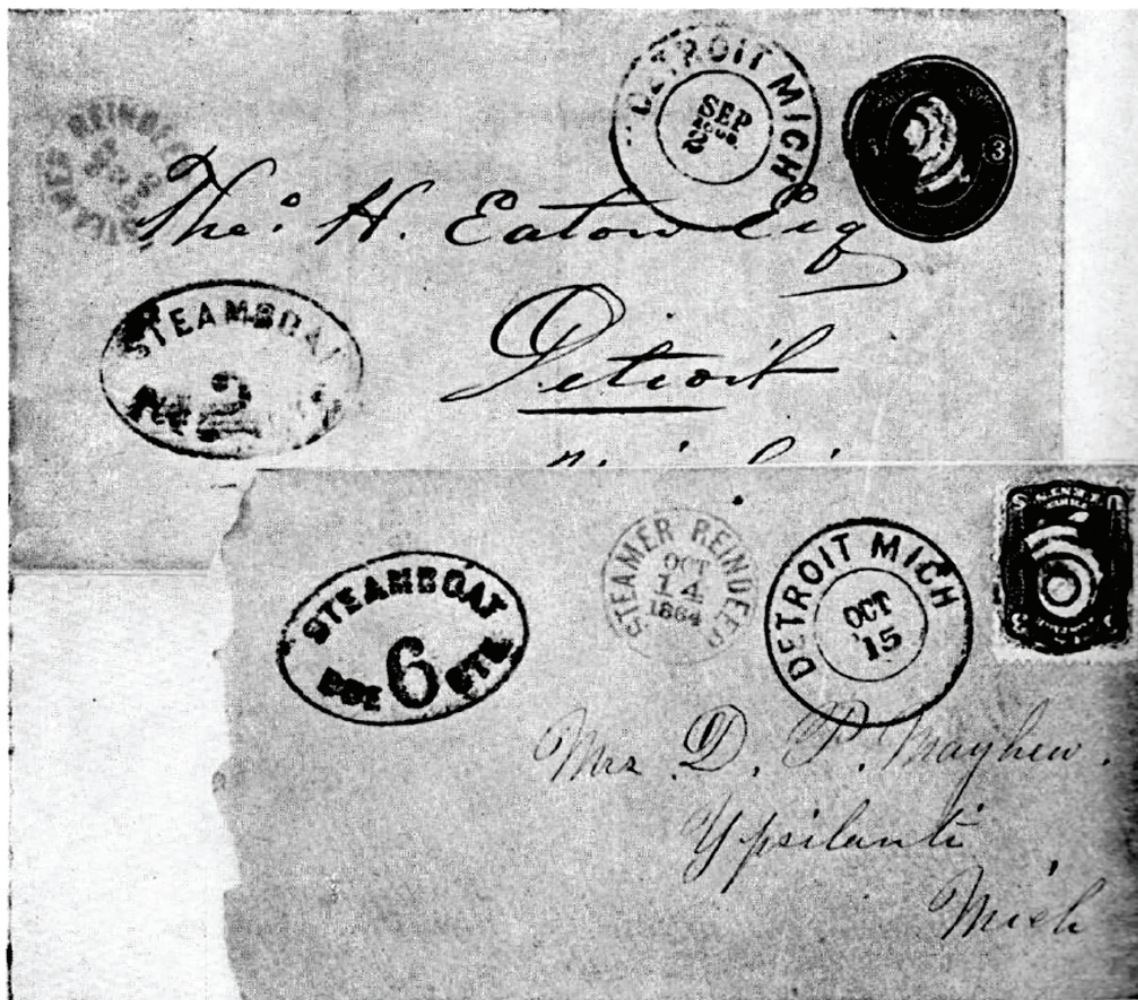 STEAMER REINDEER
SEP
DETROIT MICH
SEP
2
3
Tho.s H. Eaton Esq
Detroit
STEAMBOAT
2
STEAMBOAT
DUE 6 CTS
STEAMER REINDEER
OCT
14
1864
DETROIT MICH
OCT
15
Mrs D. P. Mayhew.
Ypsilanti
Mich